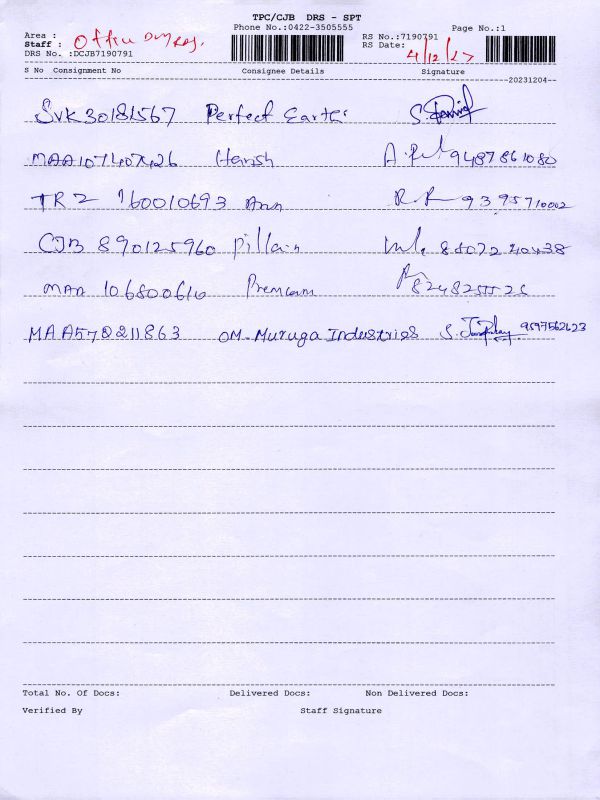 TPC/CJB DRS - SPT
Phone No.:0422-3505555
Page No.:1
Area :
Staff : Office
DRS No. :DCJB7190791
RS No.:7190791
RS Date: 4/12/
S No Consignment No Consignee Details Signature
20231204
SVK30181567 Perfect
MAA107407426 Harish 9487861080
TR2 160010693 9395710002
CJB 890125960 Pillain
MAA 106800610
MAA570211863 OM. Muruga Industries S. 9597562623
Total No. Of Docs: Delivered Docs: Non Delivered Docs:
Verified By Staff Signature